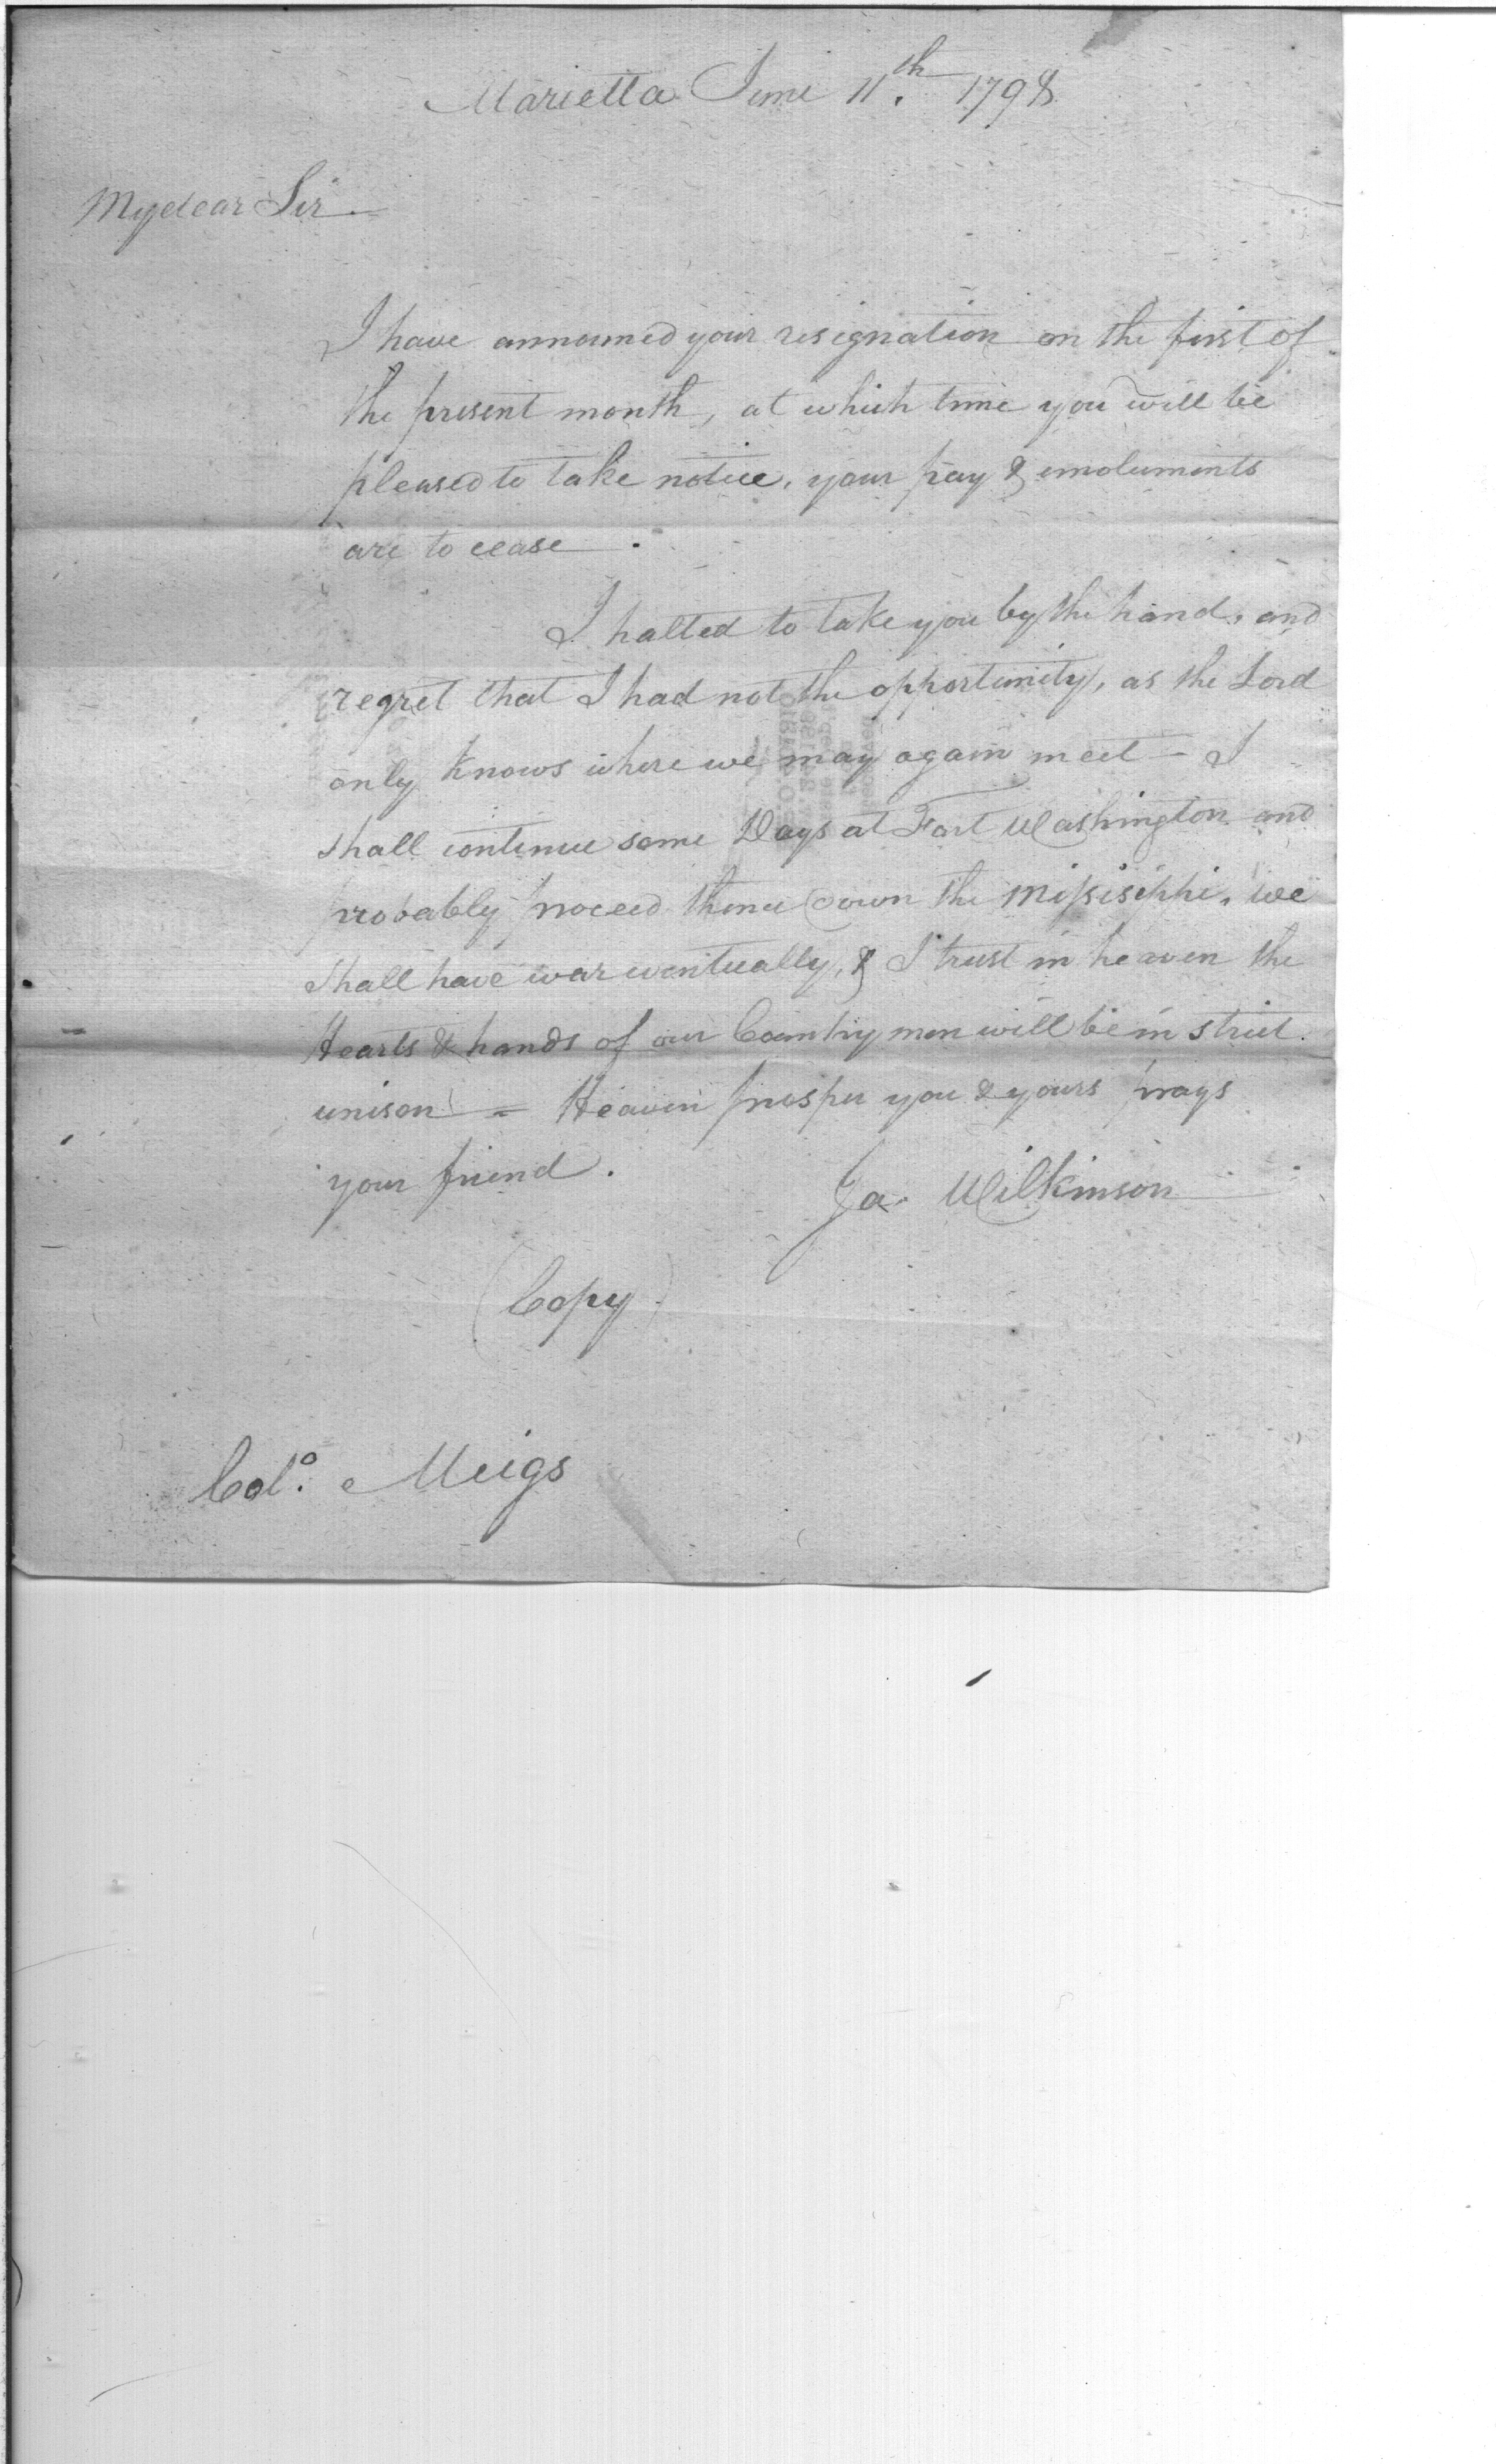 Marietta June 11th. 1798
My dear Sir
I have announced your resignation on the first of
the present month, at which time you will be
pleased to take notice, your pay & emoluments
are to cease.
I halted to take you by the hand, and
regret that I had not the opportunity, as the Lord
only knows where we may again meet – I
shall continue some Days at Fort Washington and
probably proceed thence down the Missisippi, we
shall have war eventually, & I trust in heaven the
Hearts & hands of our Countrymen will be in strict
unison = Heaven prosper you & yours prays
your friend.
Ja. Wilkinson
(Copy)
Colo. Meigs